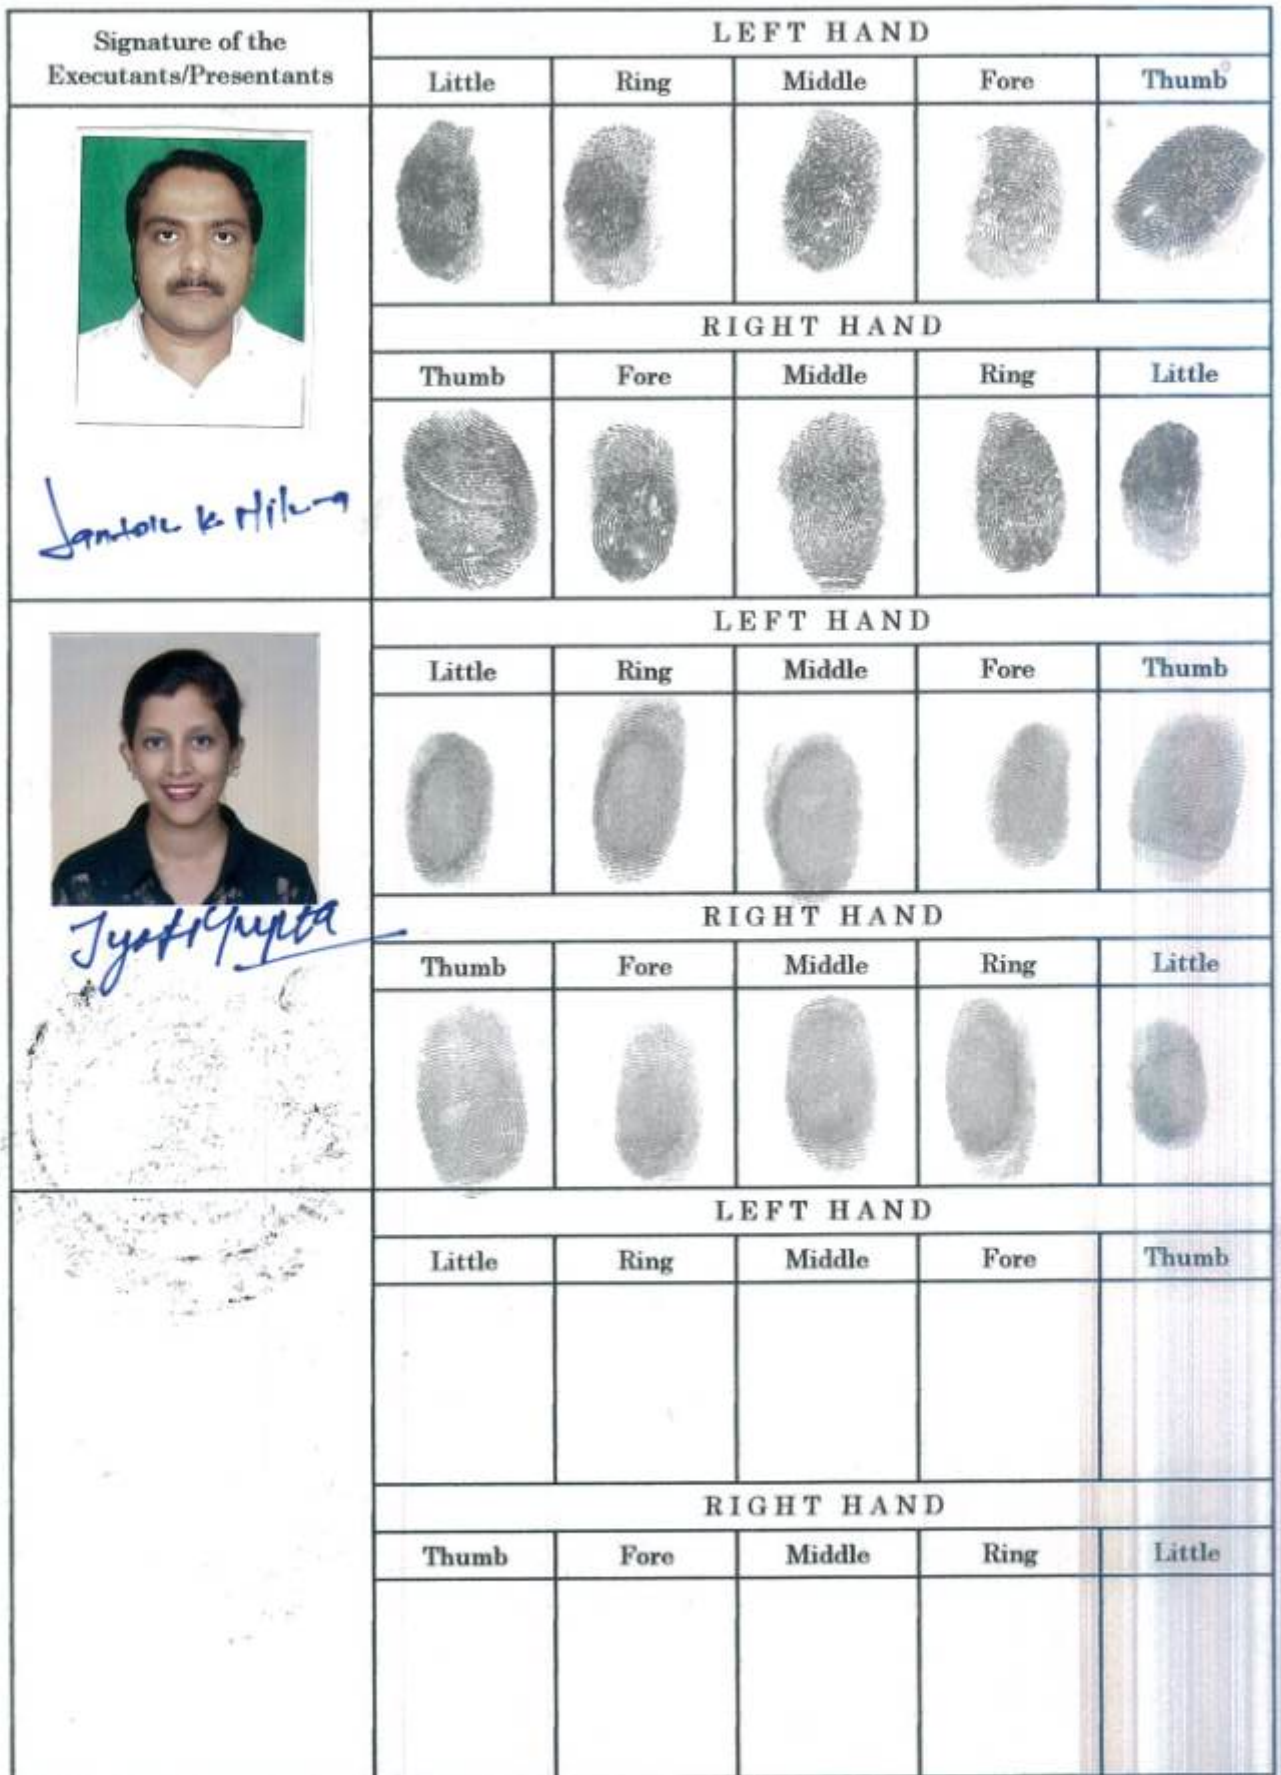 Signature of the
Executants/Presentants
LEFT HAND
Little Ring Middle Fore Thumb
RIGHT HAND
Thumb Fore Middle Ring Little
K.
LEFT HAND
Little Ring Middle Fore Thumb
Jyoti Gupta
RIGHT HAND
Thumb Fore Middle Ring Little
LEFT HAND
Little Ring Middle Fore Thumb
RIGHT HAND
Thumb Fore Middle Ring Little